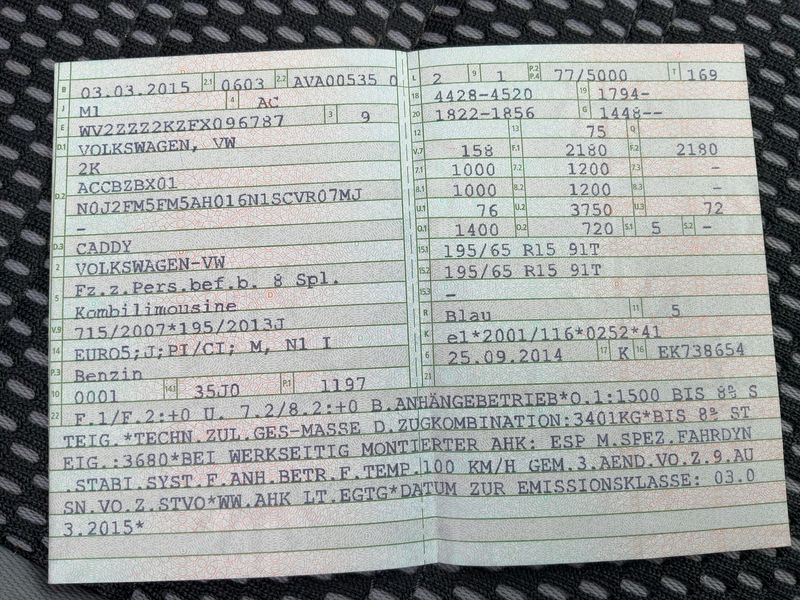 B 03.03.2015 2.1 0603 2.2 AVA00535 0
J M1 4 AC
E WV2ZZZ2KZFX096787 3 9
D.1 VOLKSWAGEN, VW
2K
D.2 ACCBZBX01
N0J2FM5FM5AH016N1SCVR07MJ
-
D.3 CADDY
2 VOLKSWAGEN-VW
5 Fz.z.Pers.bef.b. 8 Spl.
Kombilimousine
V.9 715/2007*195/2013J
14 EURO5;J;PI/CI; M, N1 I
P.3 Benzin
10 0001 14.1 35J0 P.1 1197
L 2 9 1 P.2 P.4 77/5000 T 169
18 4428-4520 19 1794-
20 1822-1856 G 1448--
12 13 75 Q
V.7 158 F.1 2180 F.2 2180
7.1 1000 7.2 1200 7.3 -
8.1 1000 8.2 1200 8.3 -
U.1 76 U.2 3750 U.3 72
O.1 1400 O.2 720 S.1 5 S.2 -
15.1 195/65 R15 91T
15.2 195/65 R15 91T
15.3 -
R Blau 11 5
K e1*2001/116*0252*41
6 25.09.2014 17 K 16 EK738654
21
22 F.1/F.2:+0 U. 7.2/8.2:+0 B.ANHÄNGEBETRIEB*O.1:1500 BIS 8% S
TEIG.*TECHN.ZUL.GES-MASSE D.ZUGKOMBINATION:3401KG*BIS 8% ST
EIG.:3680*BEI WERKSEITIG MONTIERTER AHK: ESP M.SPEZ.FAHRDYN
.STABI.SYST.F.ANH.BETR.F.TEMP.100 KM/H GEM.3.AEND.VO.Z.9.AU
SN.VO.Z.STVO*WW.AHK LT.EGTG*DATUM ZUR EMISSIONSKLASSE: 03.0
3.2015*